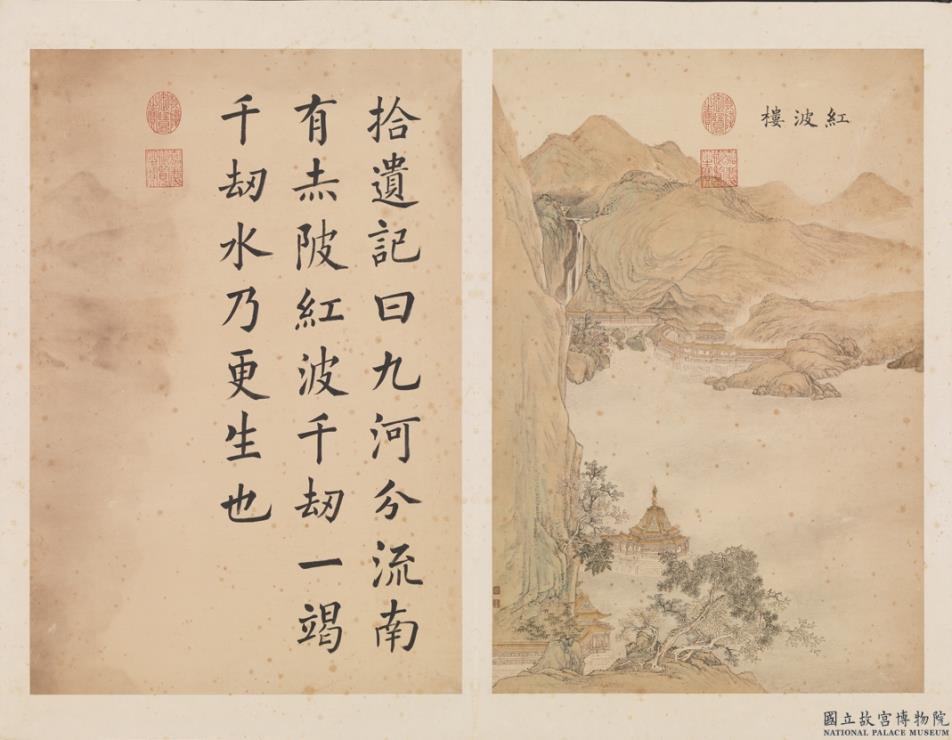 紅波樓
拾遺記曰九河分流南
有赤陂紅波千刼一竭
千刼水乃更生也
國立故宮博物院
NATIONAL PALACE MUSEUM